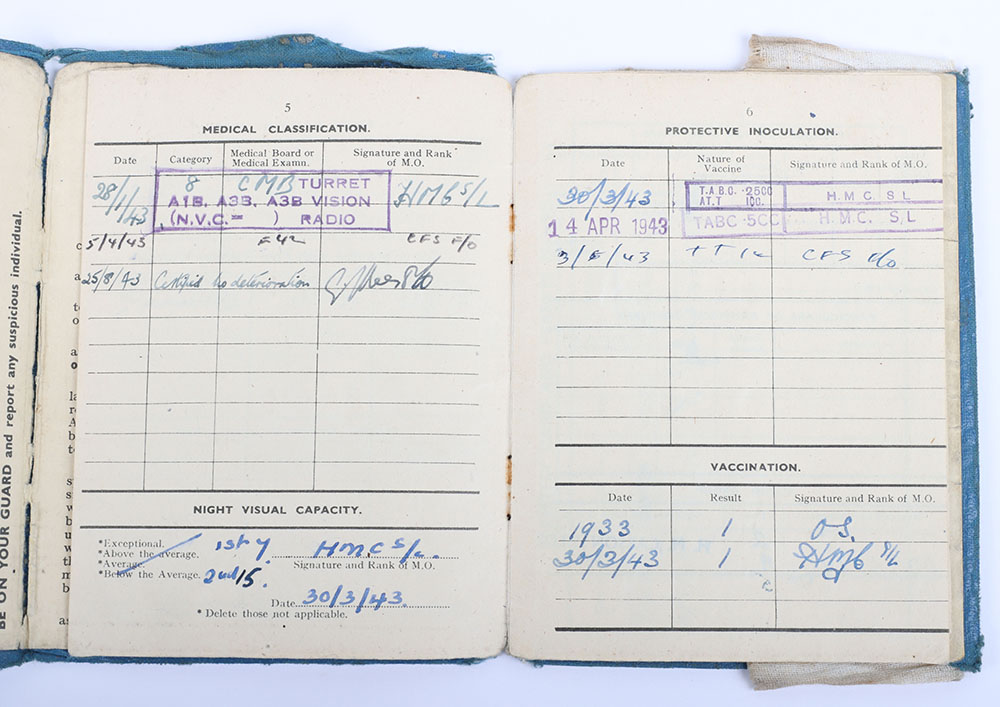 BE ON YOUR GUARD and report any suspicious individual.
5
MEDICAL CLASSIFICATION.
Date Category Medical Board or Medical Examn. Signature and Rank of M.O.
28/1/43 8 CMB TURRET
A1B, A3B, A3B VISION
(N.V.C. = ) RADIO
5/4/43 CFS F/O
25/8/43 no deterioration
NIGHT VISUAL CAPACITY.
*Exceptional.
*Above the average.
*Average.
*Below the Average.
1st 7 HMC S/L
Signature and Rank of M.O.
2nd 15.
Date 30/3/43
* Delete those not applicable.
6
PROTECTIVE INOCULATION.
Date Nature of Vaccine Signature and Rank of M.O.
30/3/43 T.A.B.O. ·25CC H.M.C. S L
AT.T 1CC.
14 APR 1943 TABC ·5CC H.M.C. S.L
3/5/43 CFS F/O
VACCINATION.
Date Result Signature and Rank of M.O.
1933 1 O.S.
30/3/43 1 S/L